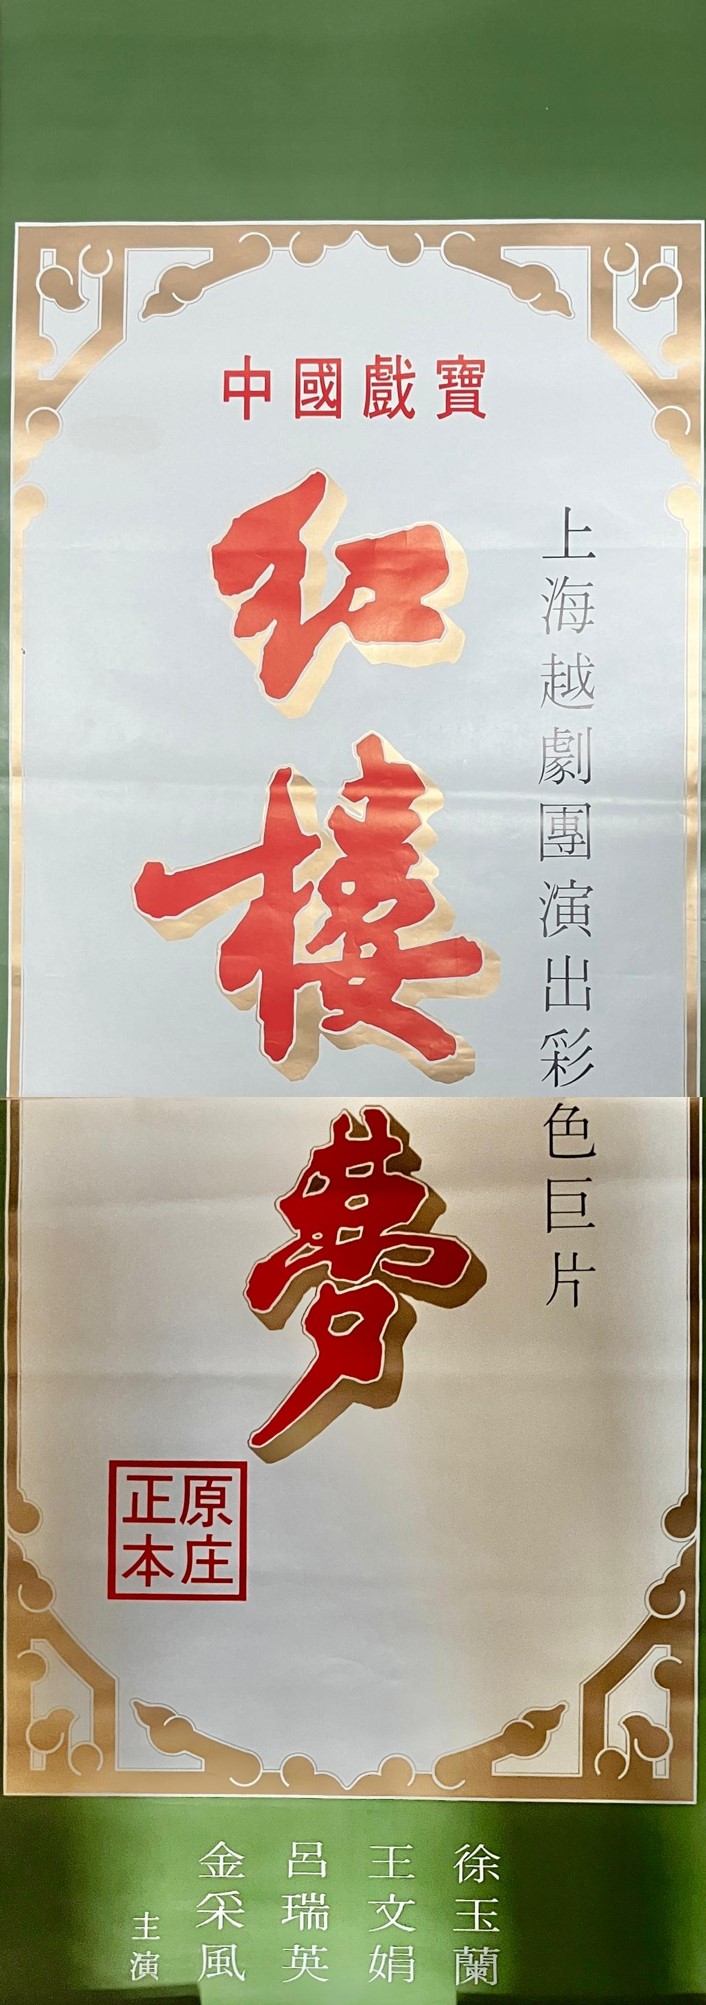 中國戲寶
红楼夢
上海越劇團演出彩色巨片
原庄
正本
徐玉蘭
王文娟
呂瑞英
金采風
主演